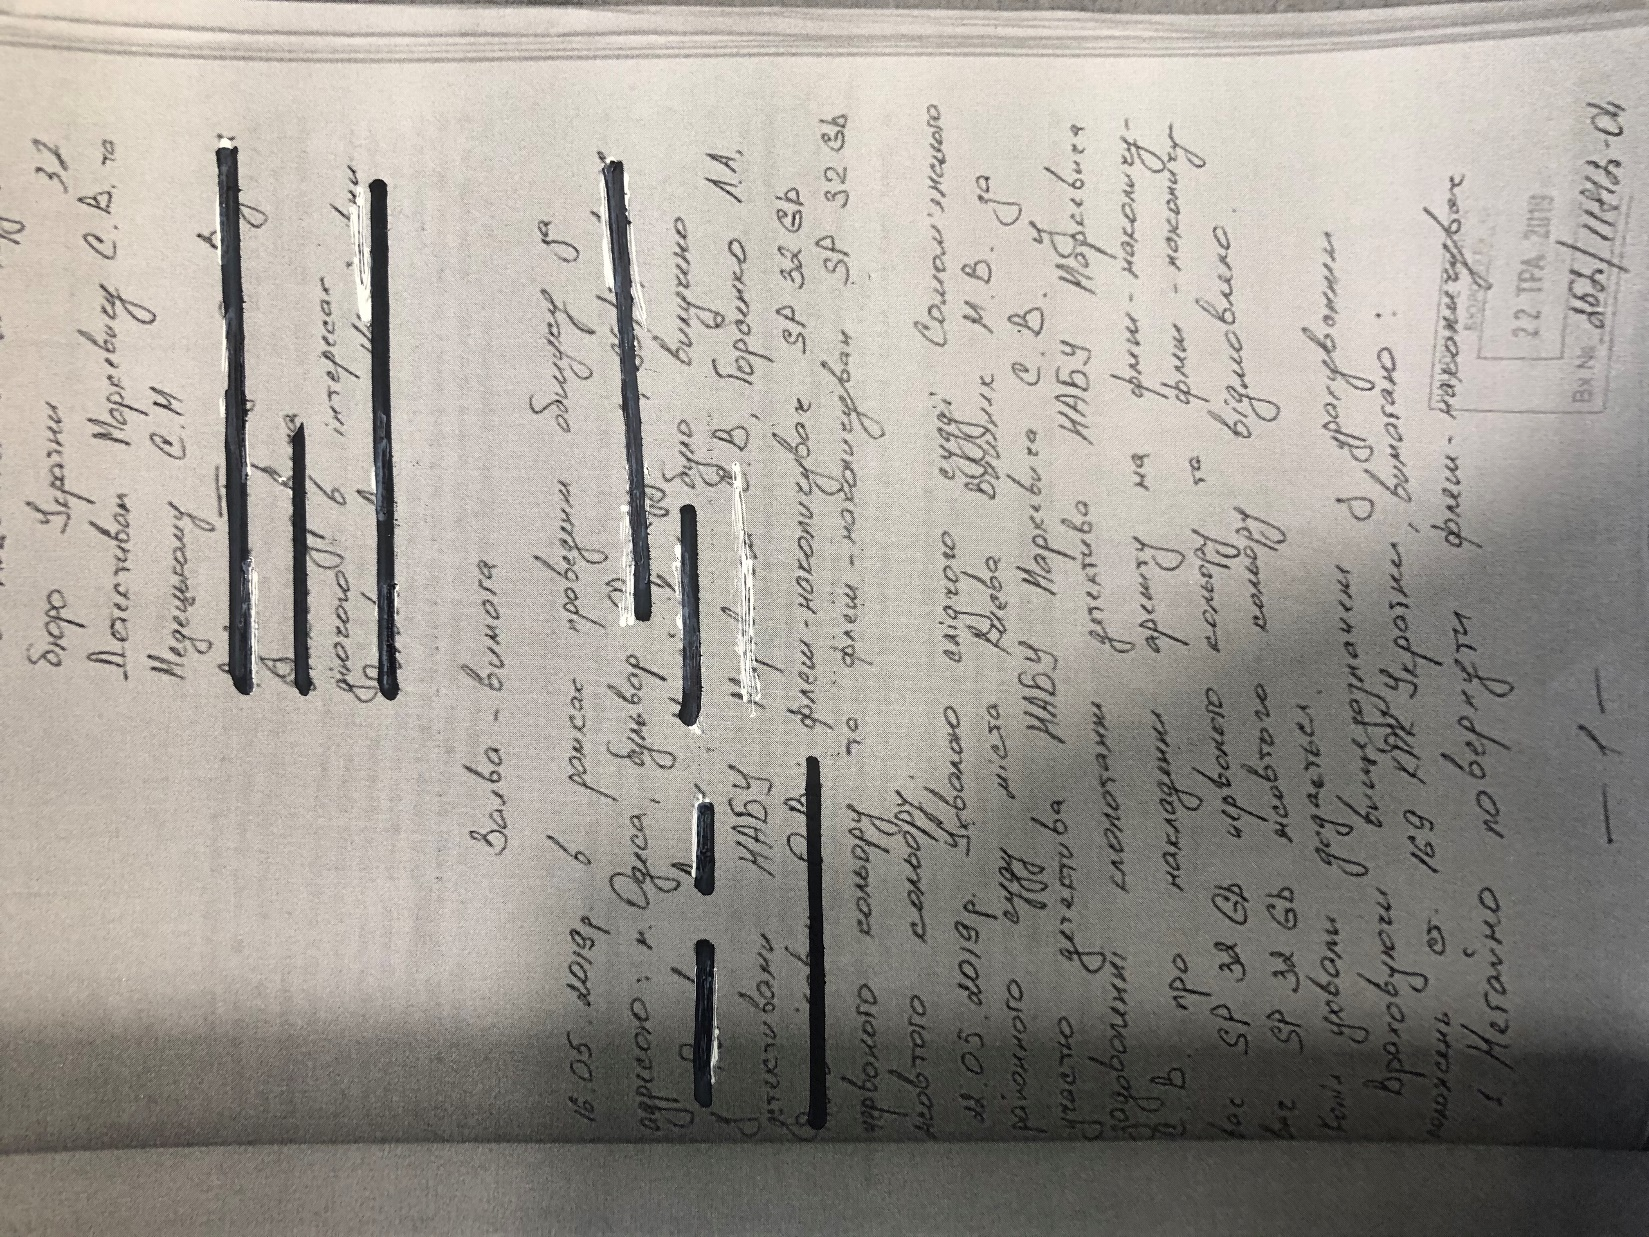 бюро України 32
Детективам Маркевичу С. В. та
Медецькому С. М
діючого в інтересах
Заява - вимога
16.05.2019р. в рамках проведення обшуку за
адресою: м. Одеса, бульвар
було вилучено
детективами НАБУ В, Горошко Л.А,
флеш-накопичувач SP 32 Gb
червоного кольору та флеш-накопичувач SP 32 Gb
жовтого кольору.
22.05.2019р. Ухвалою слідчого судді Солом'янського
районного суду міста Києва М. В. за
участю детектива НАБУ Маркевича С. В. у
задоволенні клопотання детектива НАБУ Маркевича
С. В. про накладення арешту на флеш-накопичу-
вач SP 32 Gb червоного кольору та флеш-накопичу
вач SP 32 Gb жовтого кольору відмовлено.
Копія ухвали додається.
Враховуючи вищезазначене з урахуванням
положень ст. 169 КПК України, вимагаю:
1. Негайно повернути флеш-накопичувач
22 ТРА 2019
Вх №
- 1 -